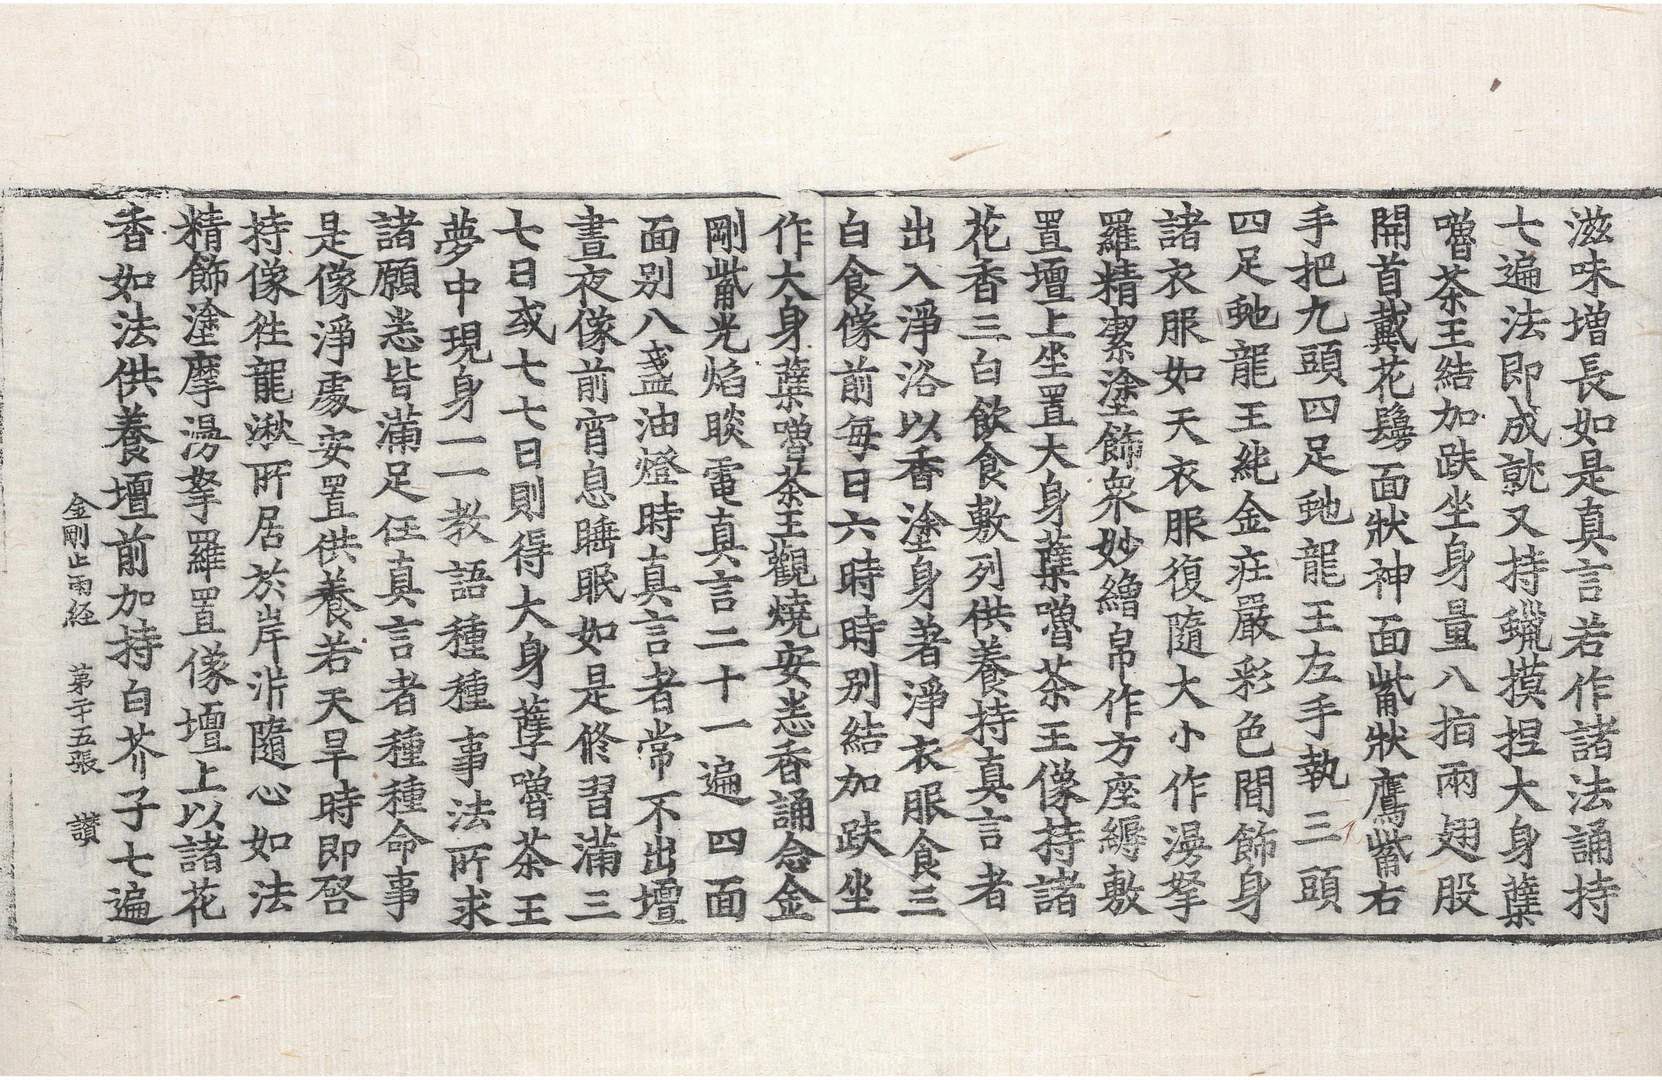 滋味增長如是真言若作諸法誦持
七遍法即成就又持蠟摸捏大身蘖
嚕茶王結加趺坐身量八指兩翅股
開首戴花鬘面狀神面觜狀鷹觜右
手把九頭四足虵龍王左手執三頭
四足虵龍王純金莊嚴彩色間飾身
諸衣服如天衣服復隨大小作漫拏
羅精潔塗飾衆妙繒帛作方座縟敷
置壇上坐置大身蘖嚕茶王像持諸
花香三白飲食敷列供養持真言者
出入淨浴以香塗身著淨衣服食三
白食像前每日六時時別結加趺坐
作大身蘖嚕茶王觀燒安悉香誦念金
剛觜光焰睒電真言二十一遍四面
面別八盞油燈時真言者常不出壇
晝夜像前宵息睡眠如是修習滿三
七日或七七日則得大身孽嚕茶王
夢中現身一一教語種種事法所求
諸願悉皆滿足任真言者種種命事
是像淨處安置供養若天旱時即啓
持像徃龍湫所居於岸泮隨心如法
精飾塗摩漫拏羅置像壇上以諸花
香如法供養壇前加持白芥子七遍
金剛止雨経 第二十五張 賛